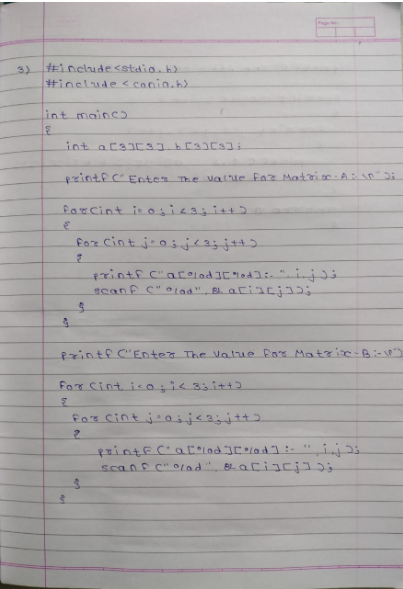 Page No.
3) #include<stdio.h>
#include <conio.h>
int main()
{
int a[3][3], b[3][3];
printf ("Enter The Value For Matrix-A:- \n");
for(int i=0; i<3; i++)
{
for (int j=0; j<3; j++)
{
printf ("a[%d][%d]:- ", i, j);
scanf ("%d", &a[i][j]);
}
}
printf ("Enter The Value For Matrix-B:-\n")
for (int i=0; i<3; i++)
{
for (int j=0; j<3; j++)
{
printf ("a[%d][%d]:- ", i, j);
scanf ("%d", &a[i][j]);
}
}